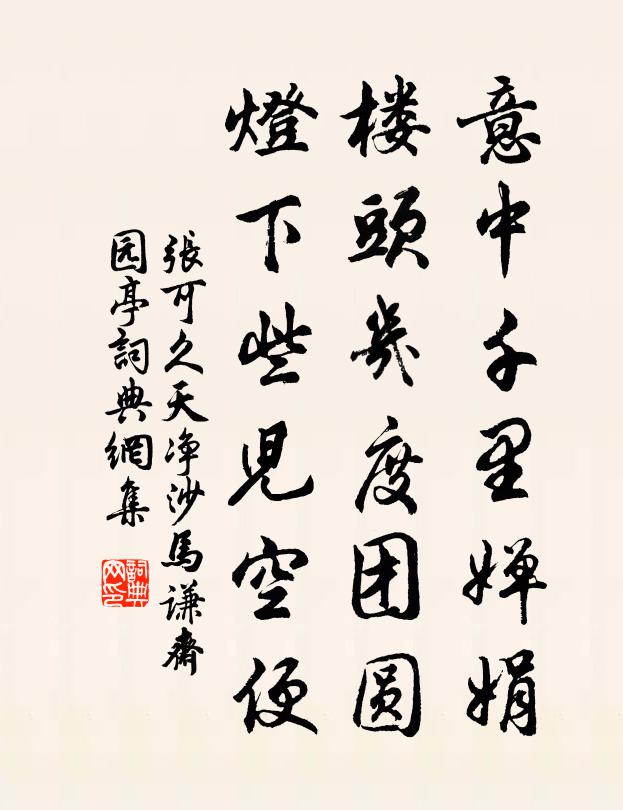 意中千里婵娟
楼頭幾度团圆
燈下些児空便
張可久天净沙馬謙齋
园亭詞典網集
詞典网印